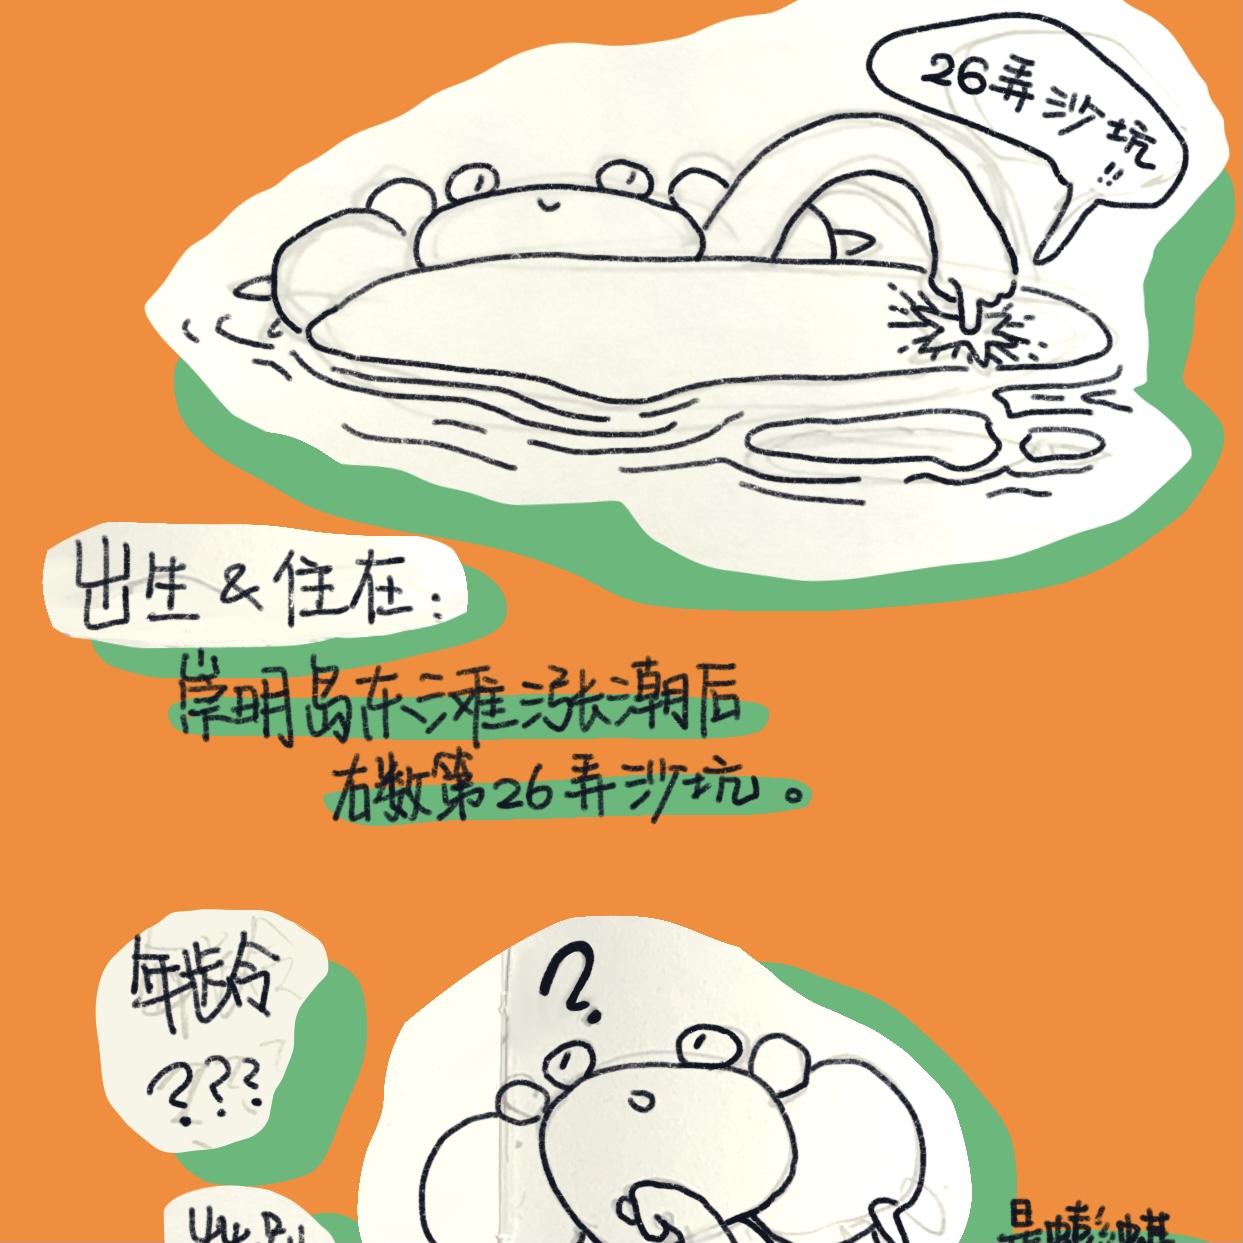 26弄沙坑
!!
出生 & 住在:
崇明岛东滩涨潮后
右数第26弄沙坑。
年龄
???
?
是蟛蜞